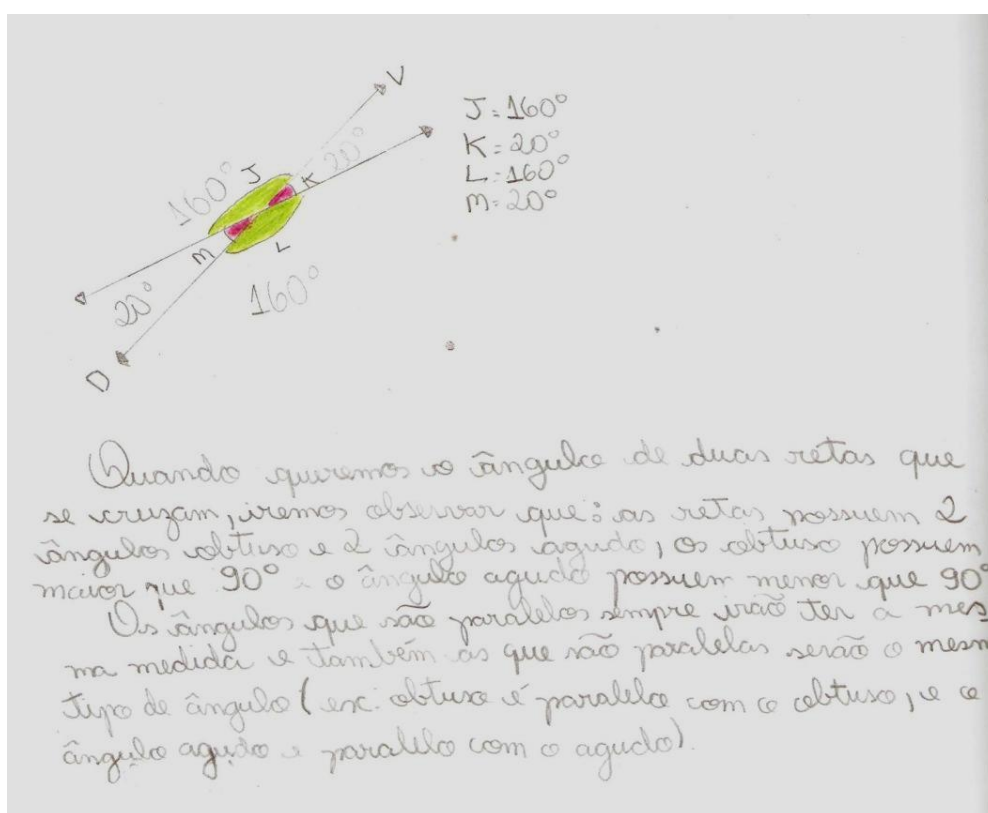 V
J = 160°
K = 20°
L = 160°
M = 20°
J
K
20°
160°
M
L
20°
160°
D
Quando queremos o ângulo de duas retas que
se cruzam, iremos observar que: as retas possuem 2
ângulos obtuso e 2 ângulos agudo, os obtuso possuem
maior que 90° e o ângulo agudo possuem menor que 90°
Os ângulos que são paralelos sempre irão ter a mes
ma medida e também as que são paralelas serão o mesm
tipo de ângulo (ex: obtuso é paralelo com o obtuso, e o
ângulo agudo e paralelo com o agudo).